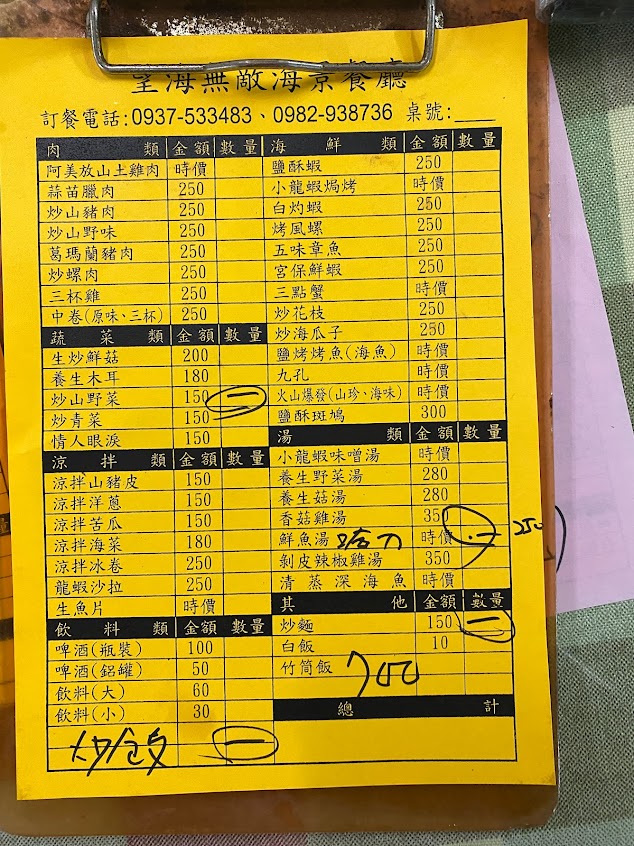 望海無敵海景餐廳
訂餐電話:0937-533483、0982-938736 桌號:___
肉類 金額 數量
阿美放山土雞肉 時價
蒜苗臘肉 250
炒山豬肉 250
炒山野味 250
葛瑪蘭豬肉 250
炒螺肉 250
三杯雞 250
中卷(原味、三杯) 250
蔬菜類 金額 數量
生炒鮮菇 200
養生木耳 180
炒山野菜 150 一
炒青菜 150
情人眼淚 150
涼拌類 金額 數量
涼拌山豬皮 150
涼拌洋蔥 150
涼拌苦瓜 150
涼拌海菜 180
涼拌冰卷 250
龍蝦沙拉 250
生魚片 時價
飲料類 金額 數量
啤酒(瓶裝) 100
啤酒(鋁罐) 50
飲料(大) 60
飲料(小) 30
炒飯 一
海鮮類 金額 數量
鹽酥蝦 250
小龍蝦焗烤 時價
白灼蝦 250
烤風螺 250
五味章魚 250
宮保鮮蝦 250
三點蟹 時價
炒花枝 250
炒海瓜子 250
鹽烤烤魚(海魚) 時價
九孔 時價
火山爆發(山珍、海味) 時價
鹽酥斑鳩 300
湯類 金額 數量
小龍蝦味噌湯 時價
養生野菜湯 280
養生菇湯 280
香菇雞湯 350
鮮魚湯 時價 一 250
剝皮辣椒雞湯 350
清蒸深海魚 時價
其他 金額 數量
炒麵 150 一
白飯 10
竹筒飯
700
總計